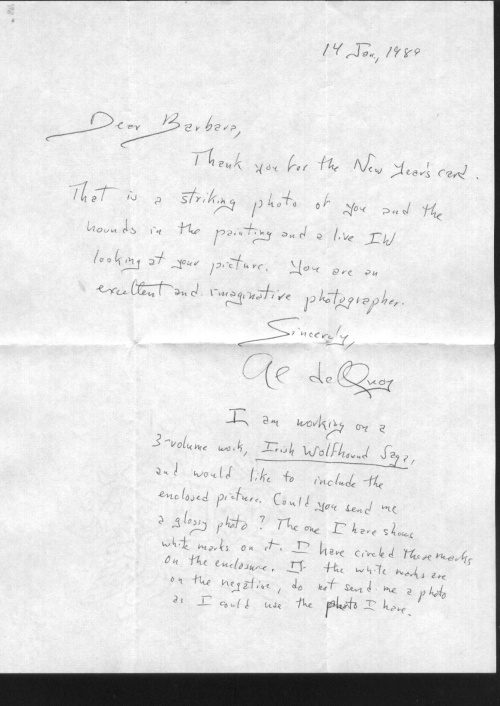 14 Jan, 1989
Dear Barbara,
Thank you for the New Year's card.
That is a striking photo of you and the
hounds in the painting and a live IW
looking at your picture. You are an
excellent and imaginative photographer.
Sincerely,
Al deQuoy
I am working on a
3-volume work, Irish Wolfhound Saga,
and would like to include the
enclosed picture. Could you send me
a glossy photo? The one I have shows
white marks on it. I have circled these marks
on the enclosure. If the white marks are
on the negative, do not send me a photo
as I could use the photo I have.